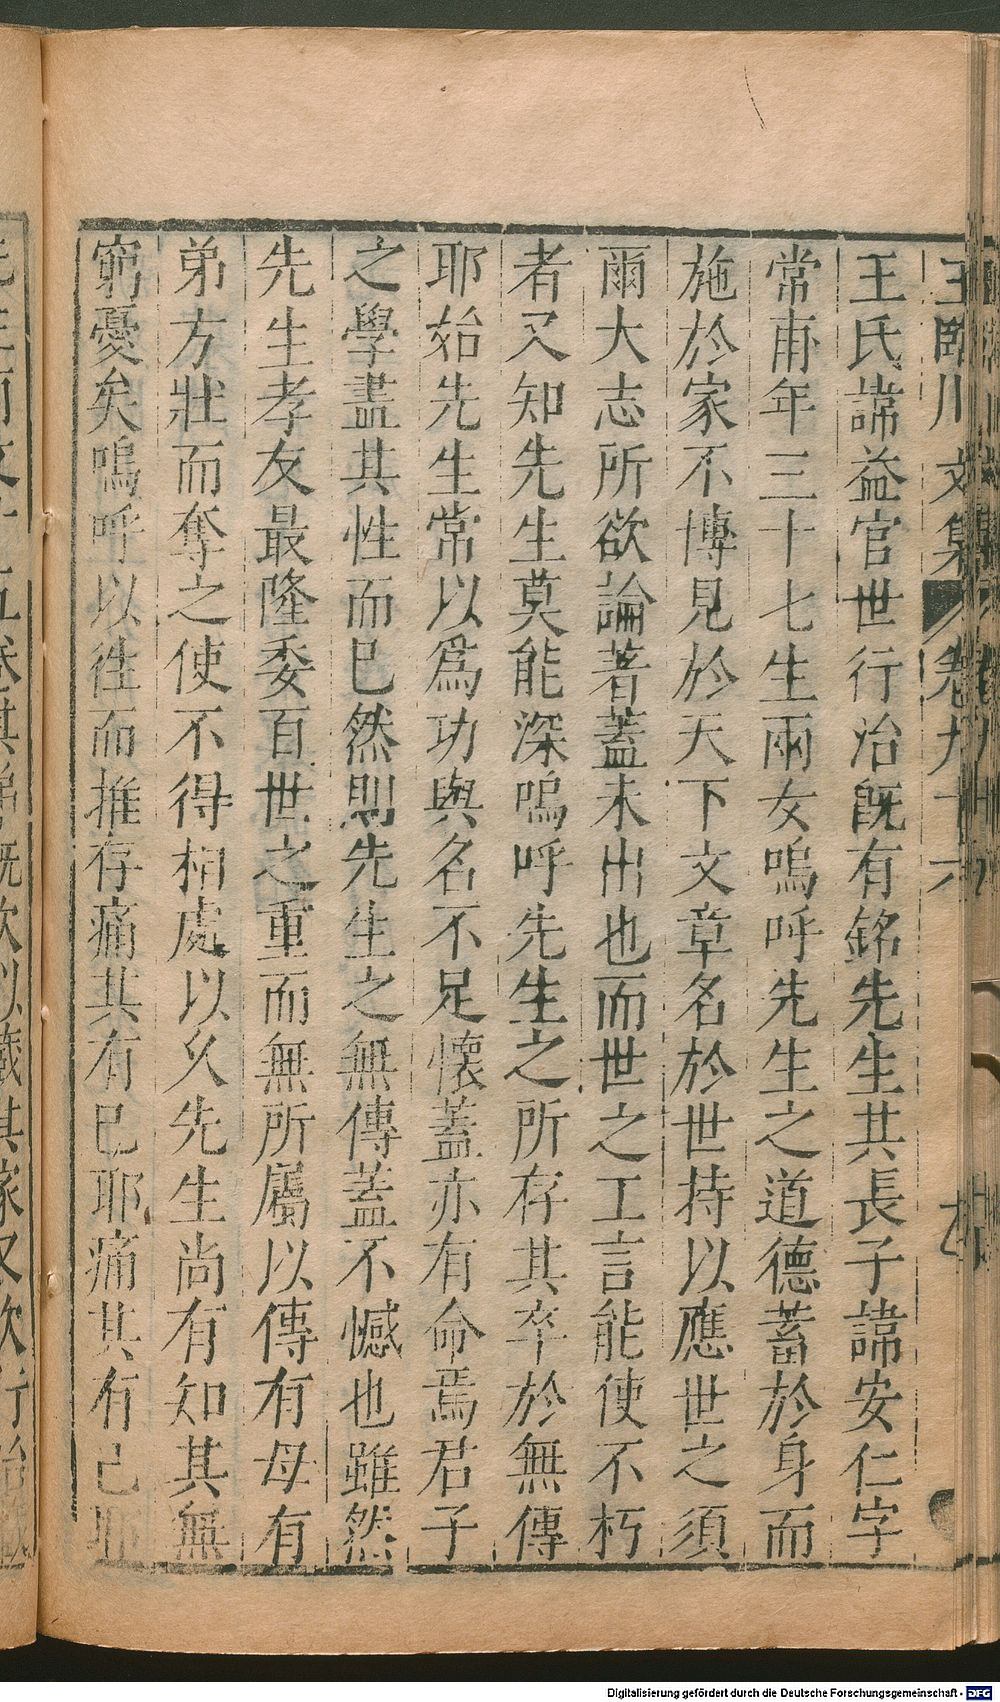 王臨川文集 卷九十六
王氏諱益官世行治旣有銘先生其長子諱安仁字
常甫年三十七生兩女嗚呼先生之道德蓄於身而
施於家不博見於天下文章名於世持以應世之須
爾大志所欲論著蓋未出也而世之工言能使不朽
者又知先生莫能深嗚呼先生之所存其卒於無傳
耶始先生常以爲功與名不足懷蓋亦有命焉君子
之學盡其性而已然則先生之無傳蓋不憾也雖然
先生孝友最隆委百世之重而無所屬以傳有母有
弟方壯而奪之使不得相處以久先生尚有知其無
窮憂矣嗚呼以往而推存痛其有已耶痛其有已耶
Digitalisierung gefördert durch die Deutsche Forschungsgemeinschaft - DFG